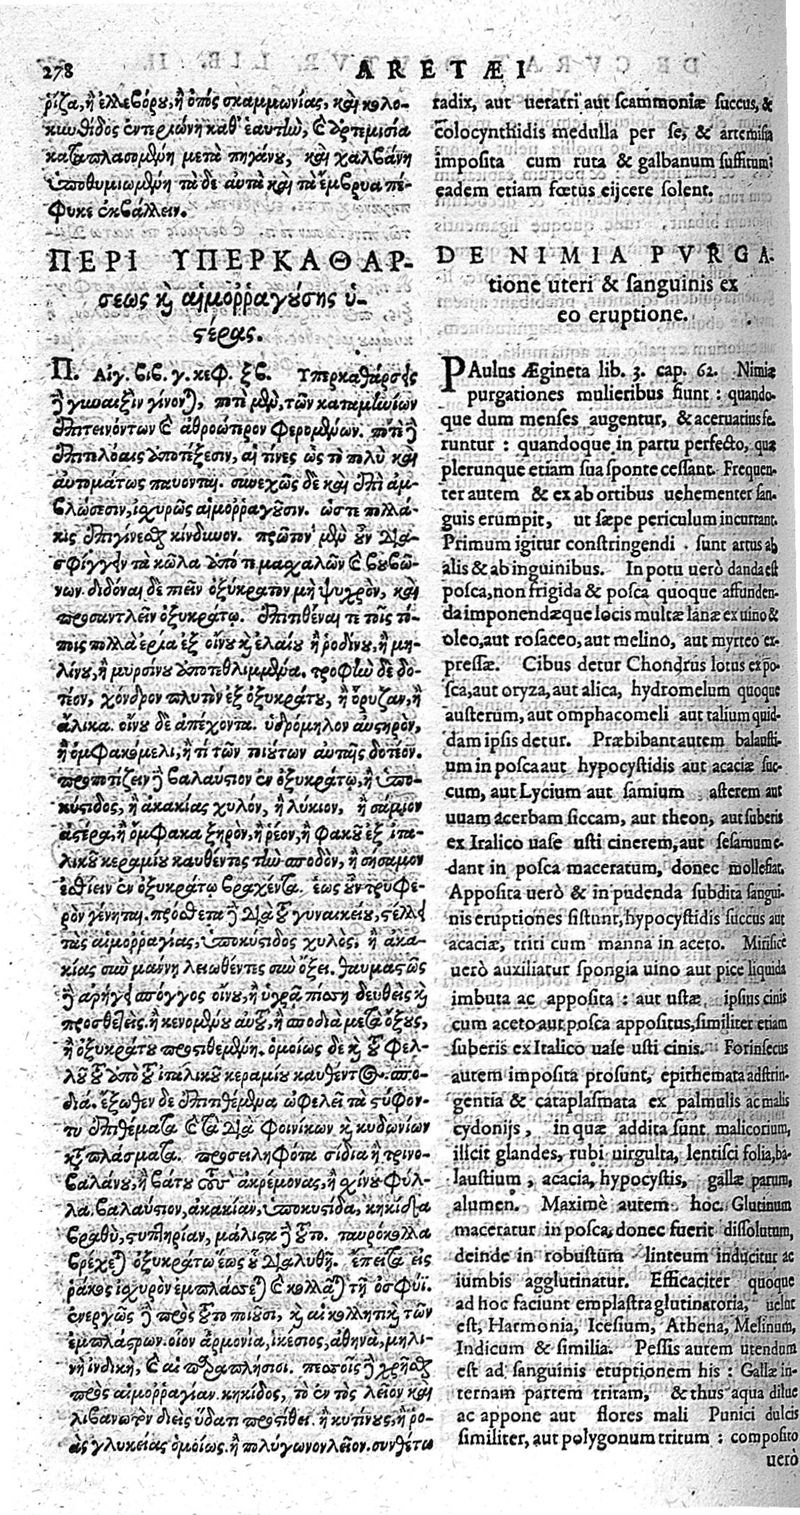 278 ARETÆI
ρίζα, ἢ ἐλλεβόρου, ἢ ὀπὸς σκαμμωνίας, καὶ κολο-
κυνθίδος ἐντεριώνη καθ' ἑαυτὴν, καὶ ἀρτεμισία
καταπλασομένη μετὰ πηγάνου, καὶ χαλβάνη
ὑποθυμιωμένη τὰ δὲ αὐτὰ καὶ τὰ ἔμβρυα πέ-
φυκε ἐκβάλλειν.
ΠΕΡΙ ΥΠΕΡΚΑΘΑΡ-
σεως καὶ αἱμορραγούσης ὑ-
στέρας.
Π. Αἰγ. βιβ. γ. κεφ. ξβ. Ὑπερκαθάρσεις
δὲ γυναιξὶν γίνονται, ποτὲ μὲν, τῶν καταμηνίων
ἐπιτεινόντων καὶ ἀθροώτερον φερομένων. ποτὲ δὲ
ἐπιπλόαις ὑποτέξεσιν, αἵ τινες ὡς τὸ πολὺ καὶ
αὐτομάτως παύονται. συνεχῶς δὲ καὶ ἐπὶ ἀμ-
βλώσεσιν, ἰσχυρῶς αἱμορραγοῦσιν. ὥστε πολλά-
κις ἐπιγίνεσθαι κίνδυνον. πρῶτον μὲν οὖν δια-
σφίγγειν τὰ κῶλα ὑπό τι μασχαλῶν καὶ βουβώ-
νων. διδόναι δὲ πιεῖν ὀξύκρατον μὴ ψυχρὸν, καὶ
προσαντλεῖν ὀξυκράτῳ. ἐπιτιθέναι τι τοῖς τό-
ποις πολλὰ ἔρια ἐξ οἴνου καὶ ἐλαίου ἢ ῥοδίνου, ἢ μη-
λίνου, ἢ μυρσίνου ὑποτεθλιμμένα. τροφὴν δὲ δο-
τέον, χόνδρον πλυτὸν ἐξ ὀξυκράτου, ἢ ὄρυζαν, ἢ
ἄλικα. οἴνου δὲ ἀπέχοντα. ὑδρόμηλον αὐστηρὸν,
ἢ ὀμφακόμελι, ἤ τι τῶν τοιούτων αὐταῖς δοτέον.
προποτίζειν δὲ βαλαύστιον ἐν ὀξυκράτῳ, ἢ ὑπο-
κυστίδος, ἢ ἀκακίας χυλὸν, ἢ λύκιον, ἢ σάμιον
ἀστέρα, ἢ ὄμφακα ξηρὸν, ἢ ῥέον, ἢ φακοῦ ἐξ ἰτα-
λικοῦ κεραμίου καυθέντος τὴν σποδὸν, ἢ σήσαμον
ἐσθίειν ἐν ὀξυκράτῳ βραχέντα. ἕως οὖν τρυφε-
ρὸν γένηται. πρόσθετα δὲ διὰ τοῦ γυναικείου, στέλλει
τὰς αἱμορραγίας, ὑποκυστίδος χυλὸς, ἢ ἀκα-
κίας σὺν μάννῃ λειωθέντες σὺν ὄξει. θαυμαστῶς
δὲ ἀρήγει σπόγγος οἴνου, ἢ ὑγρᾷ πίσσῃ δευθεὶς καὶ
προστεθεὶς, ἢ κενομένου αὐτοῦ, ἢ σποδιὰ μετὰ ὄξους,
ἢ ὀξυκράτου προστιθεμένη. ὁμοίως δὲ καὶ τοῦ φελ-
λοῦ τοῦ ὑπὸ τοῦ ἰταλικοῦ κεραμίου καυθέντος σπο-
διά. ἔξωθεν δὲ ἐπιτιθέμενα ὠφελεῖ τὰ στύφον-
τα ἐπιθέματα. καὶ τὰ διὰ φοινίκων καὶ κυδωνίων
καταπλάσματα. προσειληφότα σίδια ἢ πρινο-
βαλάνου, ἢ βάτου τοὺς ἀκρέμονας, ἢ σχίνου φύλ-
λα. βαλαύστιον, ἀκακίαν, ὑποκυστίδα, κηκίδια
βραθὺ, στυπτηρίαν, μάλιστα δὲ τοῦτο. ταυρόκολλα
βρέχεται ὀξυκράτῳ ἕως οὗ διαλυθῇ. ἔπειτα εἰς
ῥάκος ἰσχυρὸν ἐμπλάσσεται καὶ κολλᾶται τῇ ὀσφύϊ.
ἐνεργῶς δὲ πρὸς τοῦτο ποιοῦσι, καὶ αἱ κολλητικαὶ τῶν
ἐμπλάστρων. οἷον ἁρμονία, ἰκέσιος, ἀθηνᾶ, μηλί-
νη ἰνδικὴ, καὶ αἱ παραπλήσιοι. πεσσοῖς δὲ χρῆσθαι
πρὸς αἱμορραγίαν. κηκίδος, τὸ ἐντὸς λεῖον καὶ
λιβανωτὸν διεὶς ὕδατι προστίθει. ἢ κυτίνους, ἢ ῥό-
ας γλυκείας ὁμοίως. ἢ πολύγονον λεῖον. συνθέτω
radix, aut ueratri aut scammoniæ succus, &
colocynthidis medulla per se, & artemisia
imposita cum ruta & galbanum suffitum:
eadem etiam fœtus eijcere solent.
DE NIMIA PVRGA-
tione uteri & sanguinis ex
eo eruptione.
PAulus Ægineta lib. 3. cap. 62. Nimiæ
purgationes mulieribus fiunt: quando-
que dum menses augentur, & aceruatius fe-
runtur: quandoque in partu perfecto, quæ
plerunque etiam sua sponte cessant. Frequen-
ter autem & ex abortibus uehementer san-
guis erumpit, ut sæpe periculum incurrant.
Primum igitur constringendi sunt artus ab
alis & ab inguinibus. In potu uerò danda est
posca, non frigida & posca quoque affunden-
da imponendæque locis multæ lanæ ex uino &
oleo, aut rosaceo, aut melino, aut myrteo ex-
pressæ. Cibus detur Chondrus lotus ex po-
sca, aut oryza, aut alica, hydromelum quoque
austerum, aut omphacomeli aut talium quid-
dam ipsis detur. Præbibant autem balausti-
um in posca aut hypocystidis aut acaciæ suc-
cum, aut Lycium aut samium asterem aut
uuam acerbam siccam, aut theon, aut suberis
ex Italico uase usti cinerem, aut sesamum e-
dant in posca maceratum, donec mollefiat.
Apposita uerò & in pudenda subdita sangui-
nis eruptiones sistunt, hypocystidis succus aut
acaciæ, triti cum manna in aceto. Mirificè
uerò auxiliatur spongia uino aut pice liquida
imbuta ac apposita: aut ustæ ipsius cinis
cum aceto aut posca appositus, similiter etiam
suberis ex Italico uase usti cinis. Forinsecus
autem imposita prosunt, epithemata adstrin-
gentia & cataplasmata ex palmulis ac malis
cydonijs, in quæ addita sunt malicorium,
illicit glandes, rubi uirgulta, lentisci folia, ba-
laustium, acacia, hypocystis, gallæ parum,
alumen. Maximè autem hoc. Glutinum
maceratur in posca, donec fuerit dissolutum,
deinde in robustum linteum inducitur ac
iumbis agglutinatur. Efficaciter quoque
ad hoc faciunt emplastra glutinatoria, uelut
est, Harmonia, Icesium, Athena, Melinum,
Indicum & similia. Pessis autem utendum
est ad sanguinis eruptionem his: Gallæ in-
ternam partem tritam, & thus aqua dilue
ac appone aut flores mali Punici dulcis
similiter, aut polygonum tritum: composito
uerò